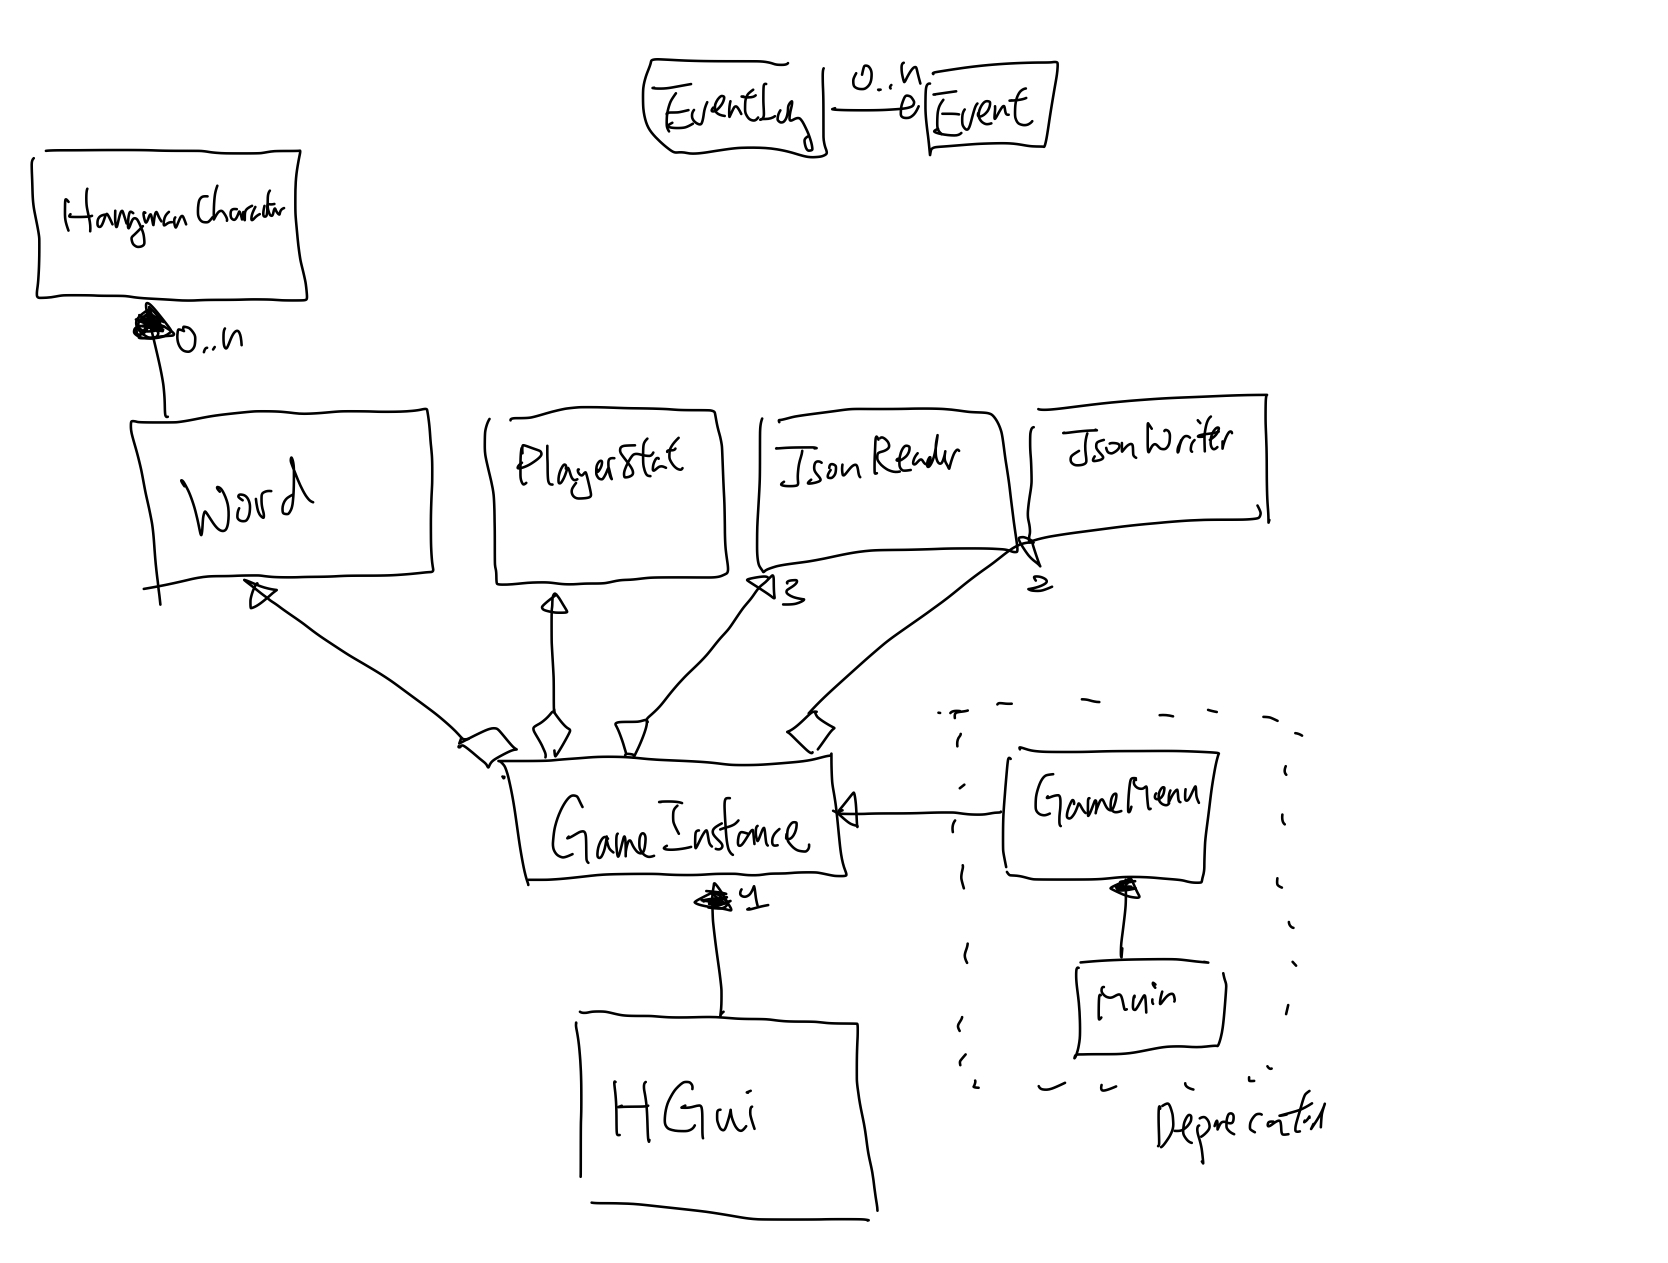 0..n
EventLog
Event
HangmanCharacter
0..n
Word
PlayerStat
JsonReader
JsonWriter
3
2
GameInstance
GameMenu
1
Main
HGui
Deprecated